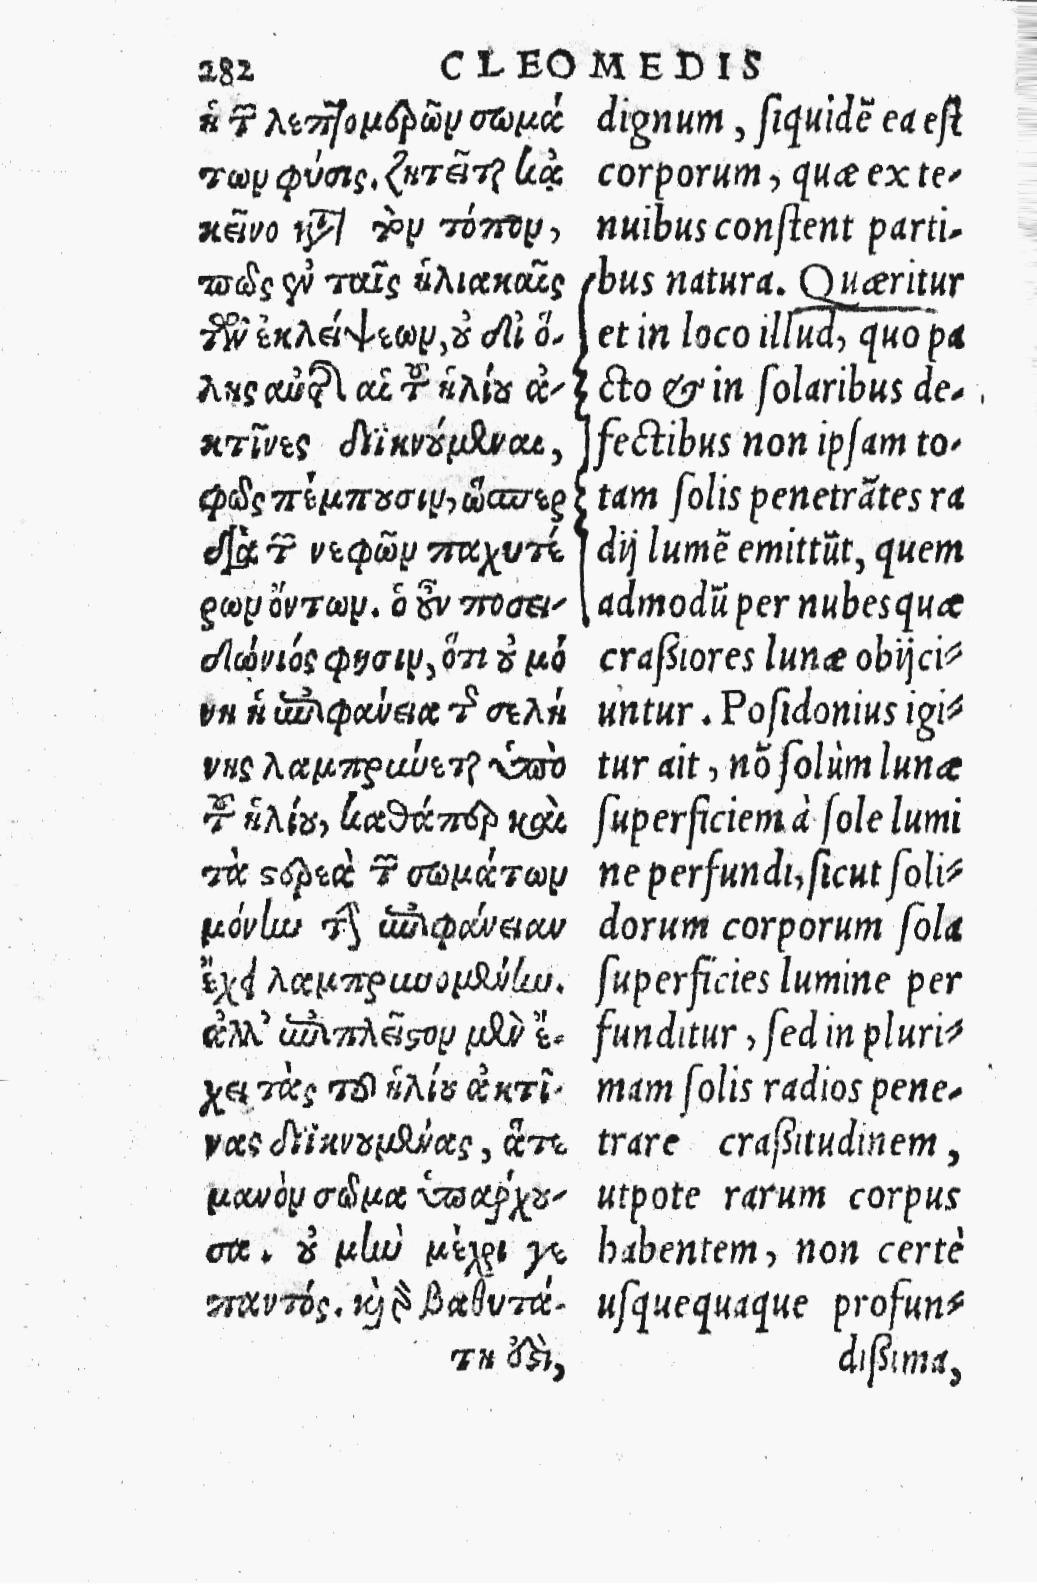 282 CLEOMEDIS
ἡ τῶν λεπτομερῶν σωμά
των φύσις. ζητεῖται κἀ
κεῖνο κατὰ τὸν τόπον,
πῶς ἐν ταῖς ἡλιακαῖς
τῶν ἐκλείψεων, οὐ δι’ ὅ-
λης αὐτῆς αἱ τοῦ ἡλίου ἀ-
κτῖνες διϊκνούμεναι,
φῶς πέμπουσιν, ὥσπερ
διὰ τῶν νεφῶν παχυτέ
ρων ὄντων. ὁ οὖν ποσει-
δώνιός φησιν, ὅτι οὐ μό
νη ἡ ἐπιφάνεια τῆς σελή
νης λαμπρύνεται ὑπὸ
τοῦ ἡλίου, καθάπερ καὶ
τὰ στερεὰ τῶν σωμάτων
μόνην τὴν ἐπιφάνειαν
ἔχει λαμπρυνομένην.
ἀλλ’ ἐπιπλεῖστον μὲν ἔ-
χει τὰς τοῦ ἡλίου ἀκτῖ-
νας διϊκνουμένας, ἅτε
μανὸν σῶμα ὑπάρχου-
σα. οὐ μὴν μέχρι γε
παντός. καὶ γὰρ βαθυτά-
τη ἐστὶ,
dignum, ſiquidẽ ea eſt
corporum, quæ ex te-
nuibus conſtent parti-
bus natura. Quæritur
et in loco illud, quo pa
cto & in ſolaribus de-
fectibus non ipſam to-
tam ſolis penetrãtes ra
dij lumẽ emittũt, quem
admodũ per nubes quæ
craßiores lunæ obijci-
untur. Poſidonius igi-
tur ait, nõ ſolùm lunæ
ſuperficiem à ſole lumi
ne perfundi, ſicut ſoli-
dorum corporum ſola
ſuperficies lumine per
funditur, ſed in pluri-
mam ſolis radios pene-
trare craßitudinem,
utpote rarum corpus
habentem, non certè
uſquequaque profun-
dißima,